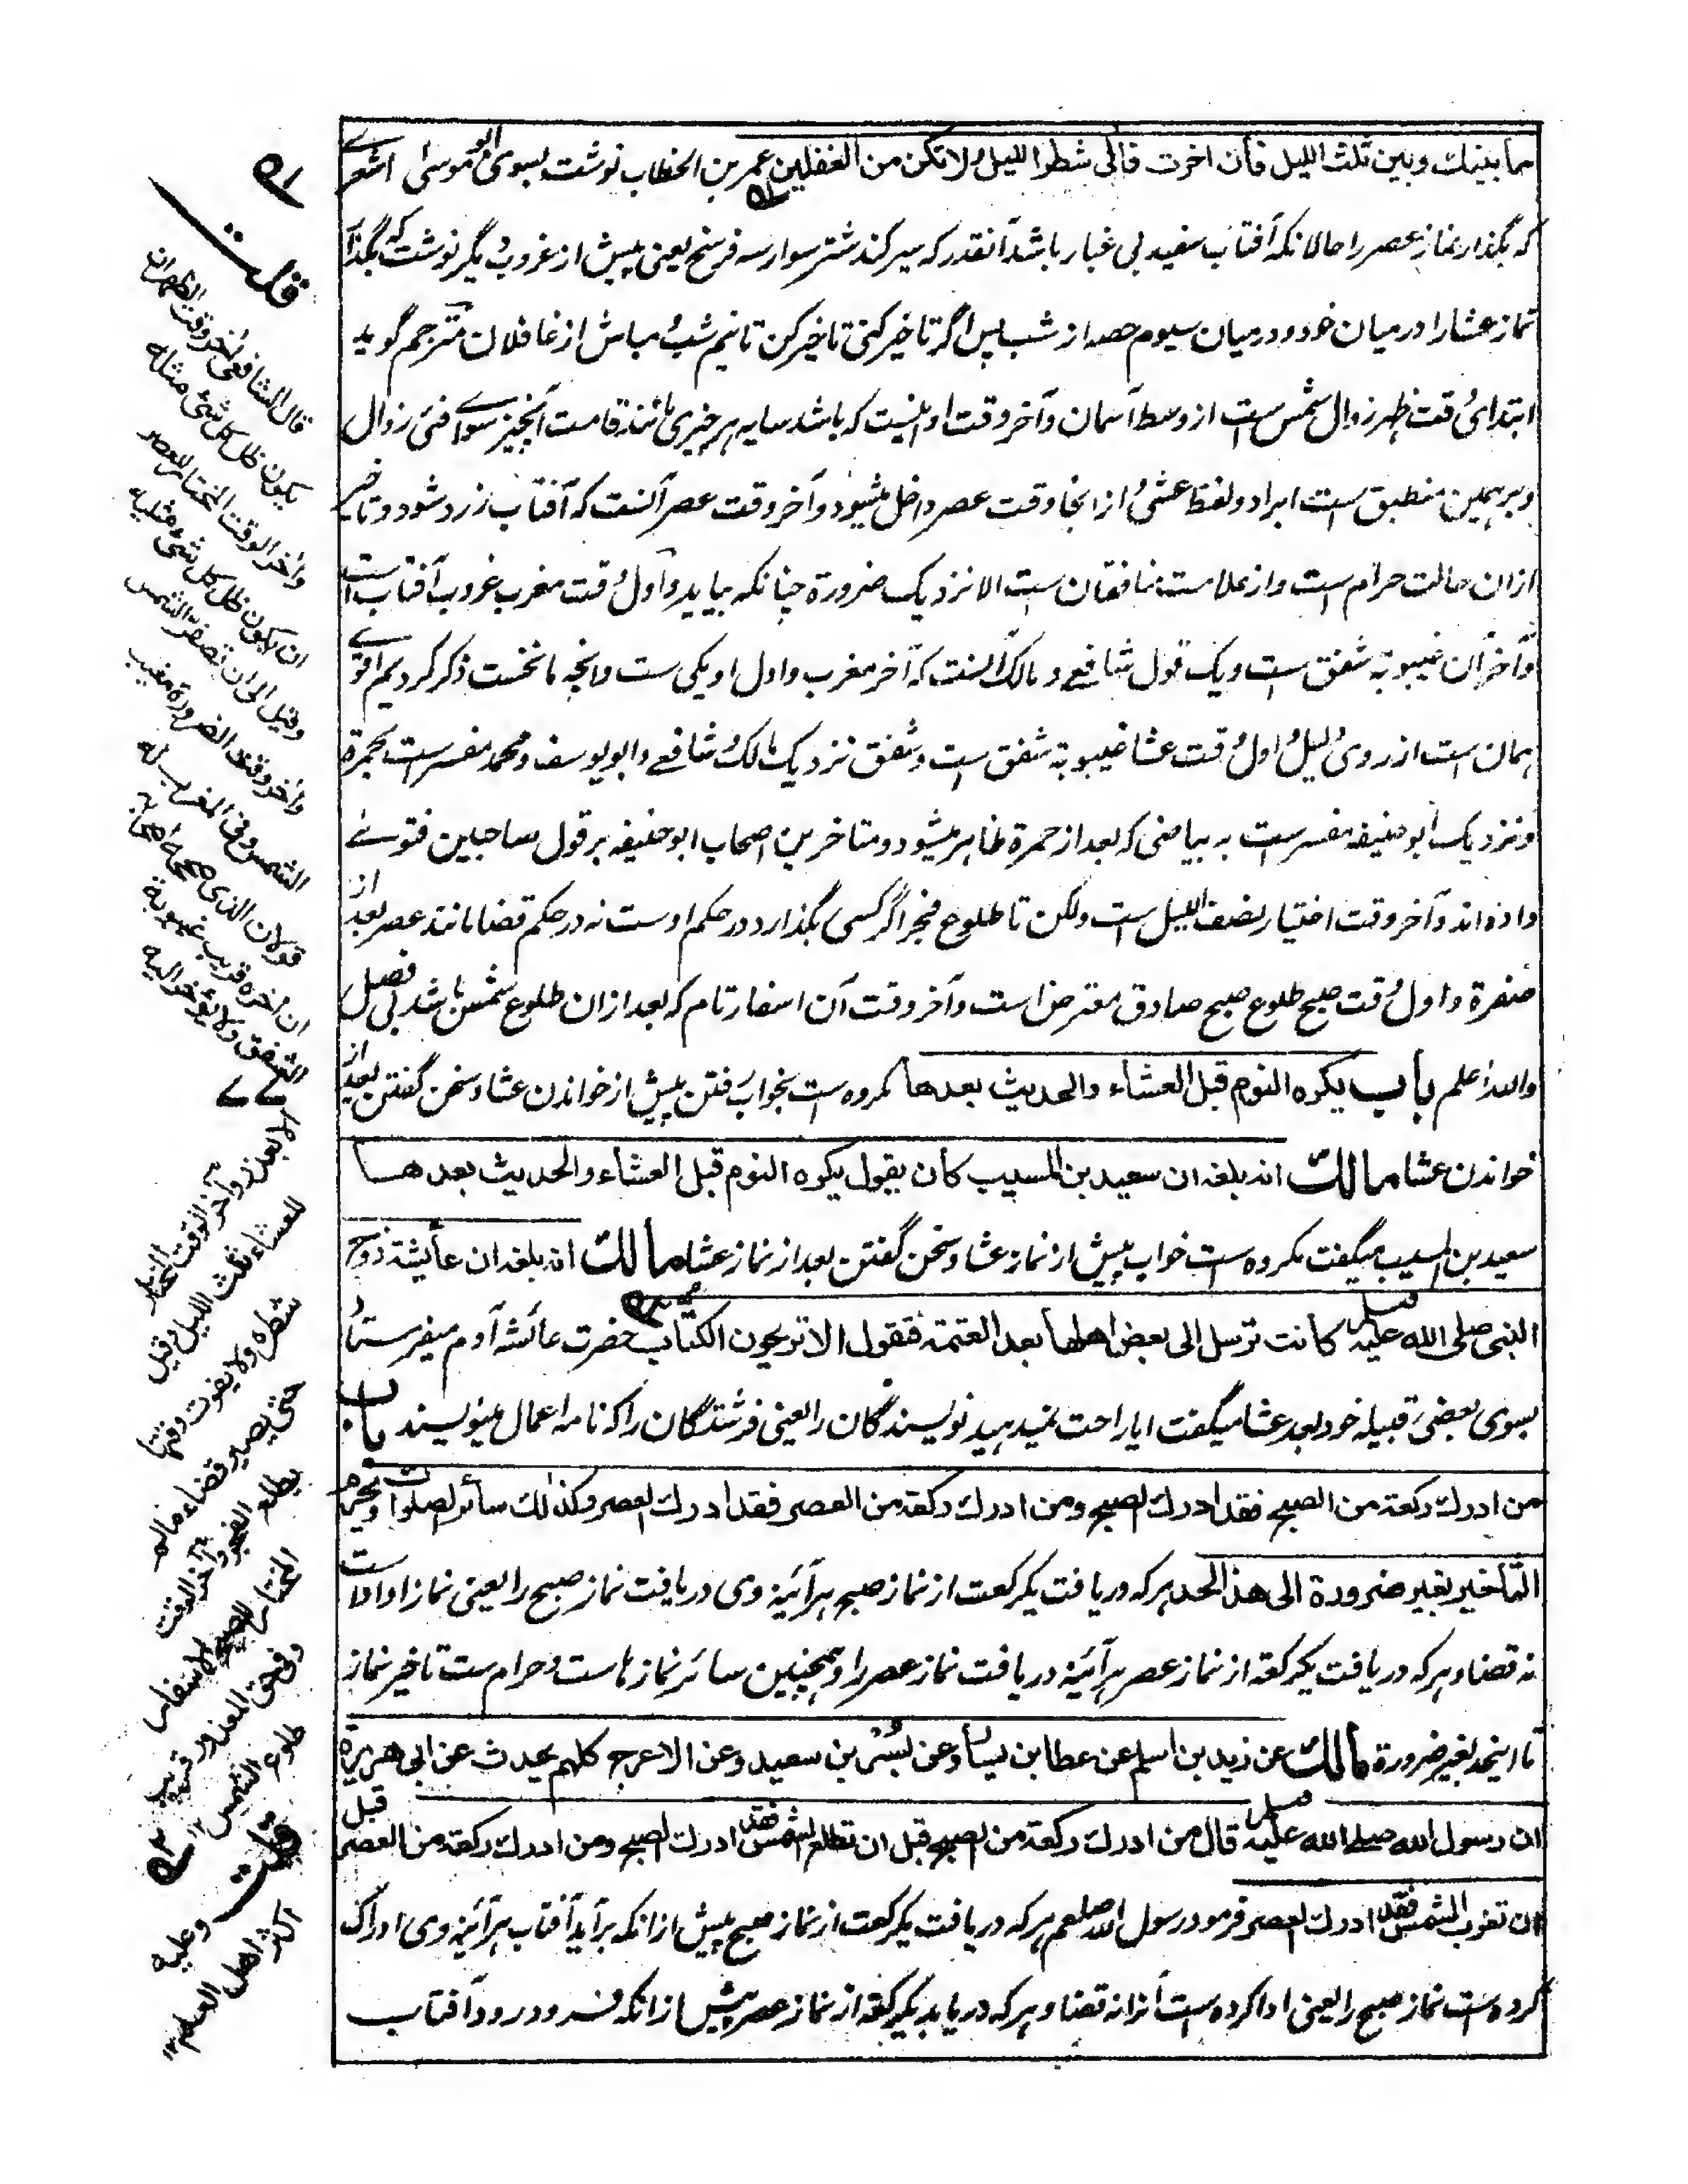 ما بينك وبين ثلث الليل فان اخرت فالى شطر الليل ولا تكن من الغفلين عمر بن الخطاب نوشت بسوی ابو موسی اشعرے
که بگذار نماز عصر را حالانکه آفتاب سفید بی غبار باشد آنقدر که سیر کند شتر سوار سه فرسخ یعنی پیش از غروب و دیگر نوشت که بگذار
نماز عشا را درمیان خود و درمیان سیوم حصه از شب پس اگر تاخیر کنی تاخیر کن تا نیم شب و مباش از غافلان مترجم گوید
ابتدای وقت ظهر زوال شمس ست از وسط آسمان و آخر وقت او اینست که باشد سایه هر چیزی مانند قامت آنچیز سواے فئ زوال
و بر همین منطبق ست ابراد و لفظ عشی و از انجا وقت عصر داخل میشود و آخر وقت عصر آنست که آفتاب زرد شود و تاخیر
ازان حالت حرام ست و از علامت منافقان ست الا نزدیک ضرورة چنانکه بیاید و اول وقت مغرب غروب آفتاب ست
و آخر آن غیبوبة شفق ست و یک قول شافعے و مالک آنست که آخر مغرب و اول او یکی ست و انچه ما نخست ذکر کردیم اقوے
همان ست از روی دلیل و اول وقت عشا غیبوبة شفق ست و شفق نزدیک مالک و شافعے و ابو یوسف و محمد مفسر ست بحمرة
و نزدیک ابو حنیفه مفسر ست به بیاضی که بعد از حمرة ظاهر میشود و متاخرین اصحاب ابو حنیفه بر قول صاحبین فتوے
داده اند و آخر وقت اختیار نصف اللیل ست ولکن تا طلوع فجر اگر کسی بگذارد در حکم اوست نه در حکم قضا مانند عصر بعد از
صفرة و اول وقت صبح طلوع صبح صادق معترض است و آخر وقت آن اسفار تام که بعد ازان طلوع شمس باشد بی فصل
والله اعلم باب يكره النوم قبل العشاء والحديث بعدها مکروه ست بخواب رفتن پیش از خواندن عشا و سخن گفتن بعد از
خواندن عشا مالك انه بلغه ان سعيد بن المسيب كان يقول يكره النوم قبل العشاء والحديث بعدها
سعید بن المسیب میگفت مکروه ست خواب پیش از نماز عشا و سخن گفتن بعد از نماز عشا مالك انه بلغه ان عائشة زوج
النبى صلى الله عليه وسلم كانت ترسل الى بعض اهلها بعد العتمة فتقول الا تريحون الكتاب حضرت عائشه آدم میفرستاد
بسوی بعضی قبیله خود بعد عشا میگفت ایا راحت نمیدهید نویسندگان را یعنی فرشتگان را که نامه اعمال مینویسند باب
من ادرك ركعة من الصبح فقد ادرك الصبح ومن ادرك ركعة من العصر فقد ادرك العصر وكذلك سائر الصلوات ويحرم
التاخير بغير ضرورة الى هذا الحد هر که دریافت یکرکعت از نماز صبح هر آئینه وی دریافت نماز صبح را یعنی نماز او اداست
نه قضا و هر که دریافت یکرکعة از نماز عصر هر آئینه دریافت نماز عصر را و همچنین سائر نماز هاست و حرام ست تاخیر نماز
تا اینحد بغیر ضرورة مالك عن زيد بن اسلم عن عطا بن يسار وعن بسر بن سعيد وعن الاعرج كلهم يحدث عن ابى هريرة
ان رسول الله صلى الله عليه وسلم قال من ادرك ركعة من الصبح قبل ان تطلع الشمس فقد ادرك الصبح ومن ادرك ركعة من العصر قبل
ان تغرب الشمس فقد ادرك العصر فرمود رسول الله صلعم هر که دریافت یکرکعت از نماز صبح پیش ازانکه برآید آفتاب هر آئینه وی ادراک
کرده ست نماز صبح را یعنی ادا کرده ست آنرا نه قضا و هر که دریابد یکرکعة از نماز عصر پیش ازانکه فرو رود آفتاب
قلت
قال الشافعى اخر وقت الظهر ان
يكون ظل كل شئ مثله
واخر الوقت المختار للعصر
ان يكون ظل كل شئ مثليه
وقيل الى ان تصفر الشمس
واخر وقت الضرورة مغيب
الشمس وفى المغرب له
قولان الذى صححه اصحابه
ان اخره قريب غيبوبة
الشفق ولا يؤخر اليه
الا بعذر وآخر الوقت المختار
للعشاء ثلث الليل وقيل
شطره ولا يفوت وقتها
حتى يصير قضاء مالم
يطلع الفجر وآخر الوقت
المختار للصبح الاسفار
وفى حق المعذور قريب
طلوع الشمس
قلت
وعليه
اكثر اهل العلم